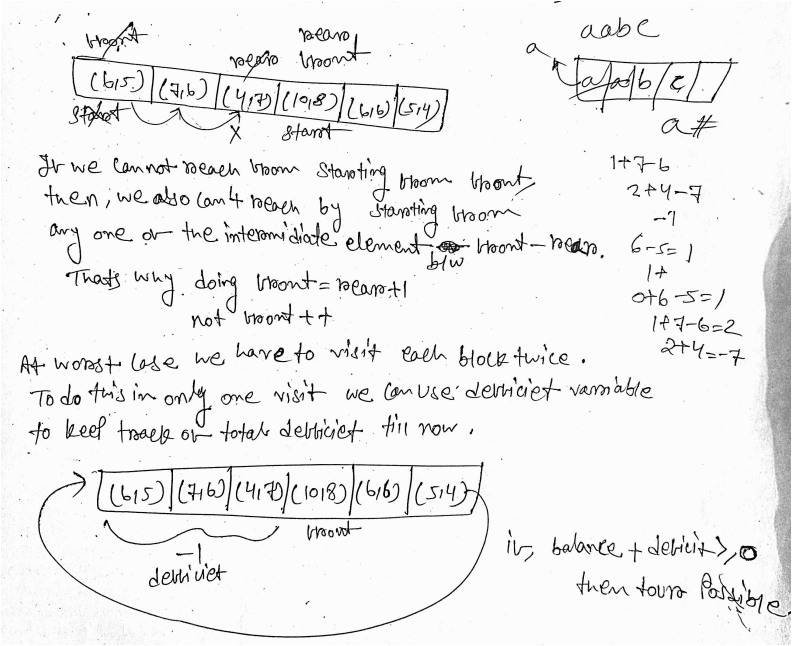 front
rear
rear front
(6,5) (7,6) (4,7) (10,8) (6,6) (5,4)
start
X
start
aabc
a
a a b c
a#
If we cannot reach from starting from front,
then, we also can't reach by starting from
any one of the intermidiate element b/w front - rear.
Thats why doing front = rear+1
not front ++
1+7-6
2+4-7
-1
6-5=1
1+
0+6-5=1
1+7-6=2
2+4=-7
At worst case we have to visit each block twice.
To do this in only one visit we can use deficiet variable
to keep track of total deficiet till now.
(6,5) (7,6) (4,7) (10,8) (6,6) (5,4)
front
-1
deficiet
if, balance + deficit >, 0
then tour Possible.